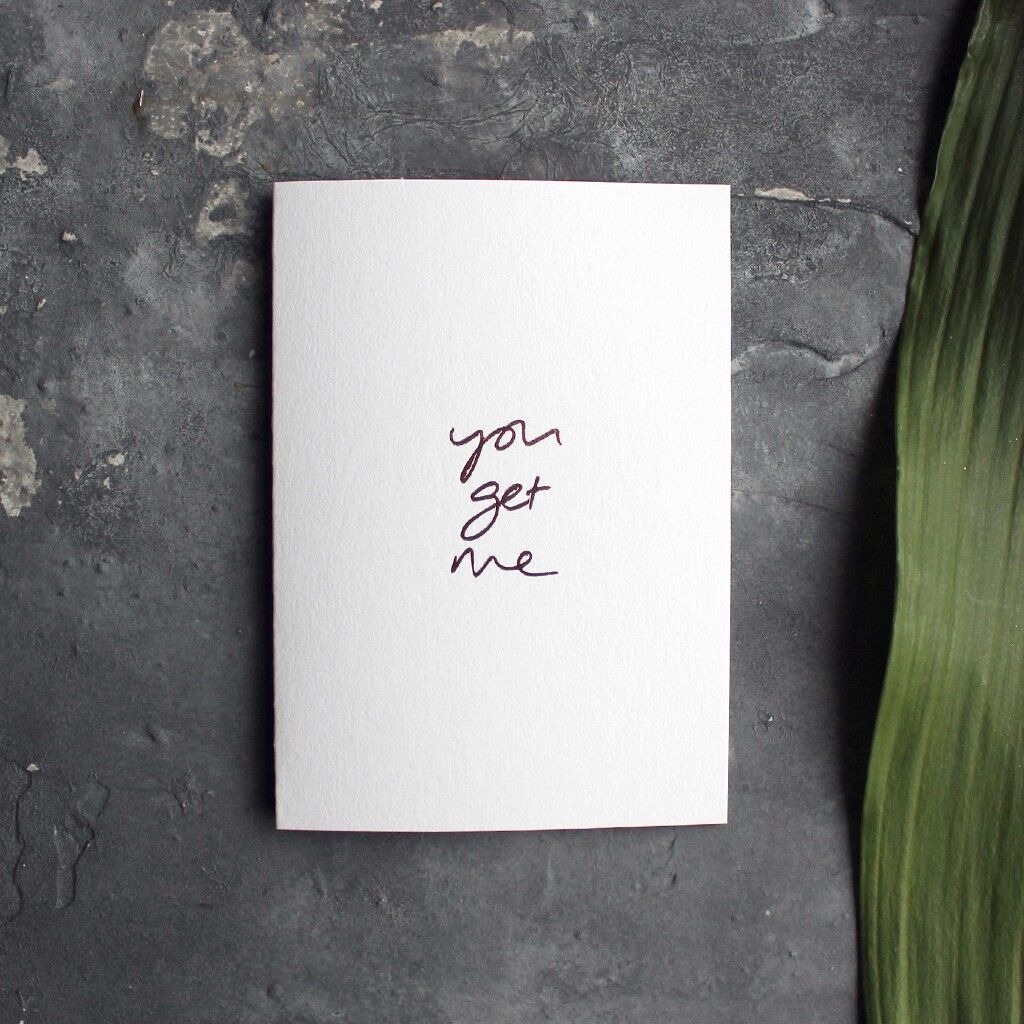 you
get
me